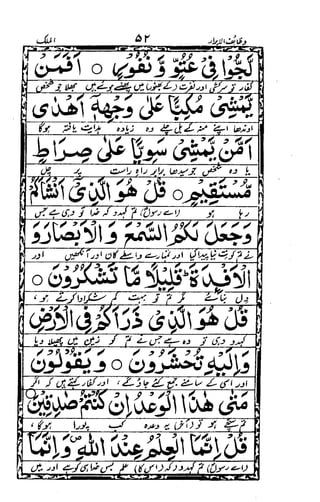 الملک ۵۲ وظائف الابرار
لَّجُّوا فِیْ عُتُوٍّ وَّ نُفُوْرٍ ○ اَفَمَنْ
یَّمْشِیْ مُکِبًّا عَلٰی وَجْهِهٖٓ اَهْدٰٓی
اوندھا اپنے منہ کے بل چلے وہ زیادہ ہدایت یافتہ ہوگا
اَمَّنْ یَّمْشِیْ سَوِیًّا عَلٰی صِرَاطٍ
یا وہ شخص جو سیدھا برابر راہ راست پر چل
مُّسْتَقِیْمٍ ○ قُلْ هُوَ الَّذِیْٓ اَنْشَاَکُمْ
رہا ہو (اے رسول) تم کہدو کہ خدا تو وہی ہے جس
وَجَعَلَ لَکُمُ السَّمْعَ وَ الْاَبْصَارَ وَ
نے تم کو نیا پیدا کیا اور تمہارے واسطے کان اور آنکھیں اور
الْاَفْئِدَةَ ؕ قَلِیْلًا مَّا تَشْکُرُوْنَ ○
دل بنائے مگر تم تو بہت کم شکر ادا کرتے ہو
قُلْ هُوَ الَّذِیْ ذَرَاَکُمْ فِی الْاَرْضِ
کہدو وہی تو ہے جس نے تم کو زمین میں پھیلا دیا
وَ اِلَیْهِ تُحْشَرُوْنَ ○ وَ یَقُوْلُوْنَ
اور اسی کے سامنے جمع کئے جاؤ گے، اور کفار کہتے ہیں کہ اگر
مَتٰی هٰذَا الْوَعْدُ اِنْ کُنْتُمْ صٰدِقِیْنَ ○
تم سچے ہو تو (آخر) یہ وعدہ کب پورا ہوگا
قُلْ اِنَّمَا الْعِلْمُ عِنْدَ اللّٰهِ وَ اِنَّمَآ
(اے رسول) تم کہدو کہ (اس کا) علم بس خدا ہی کو ہے اور میں